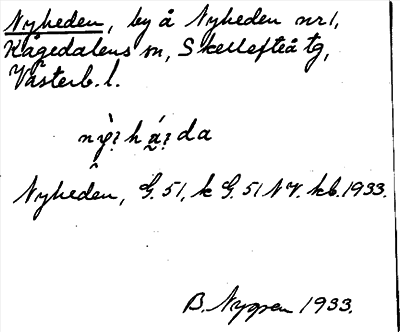 Nyheden, by å Nyheden nr 1,
Kågedalens sn, Skellefteå tg,
Västerb. l.
Nyheden, G. 51, k G. 51 NV. kb. 1933.
B. Nygren 1933.